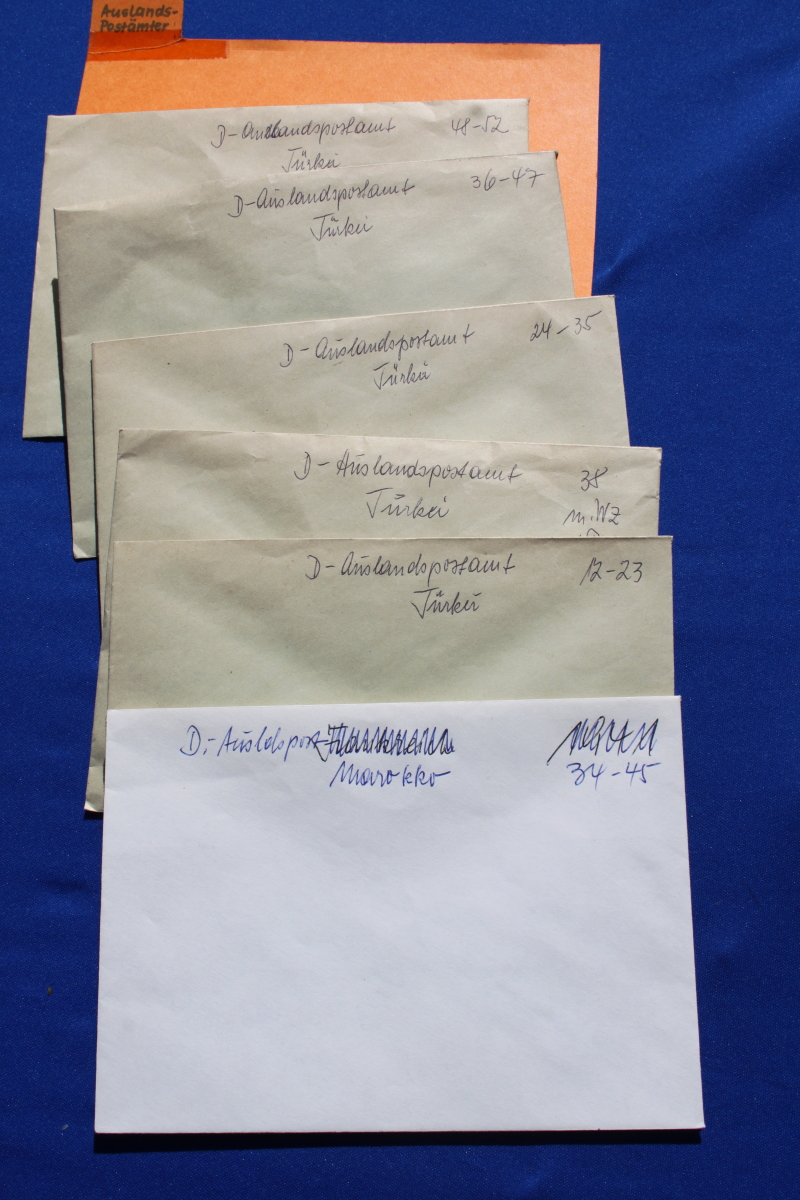 Auslands-
Postämter
D-Auslandspostamt 48-52
Türkei
D-Auslandspostamt 36-47
Türkei
D-Auslandspostamt 24-35
Türkei
D-Auslandspostamt 38
Türkei m. WZ
D-Auslandspostamt 12-23
Türkei
D.-Ausldspost
Marokko 34-45